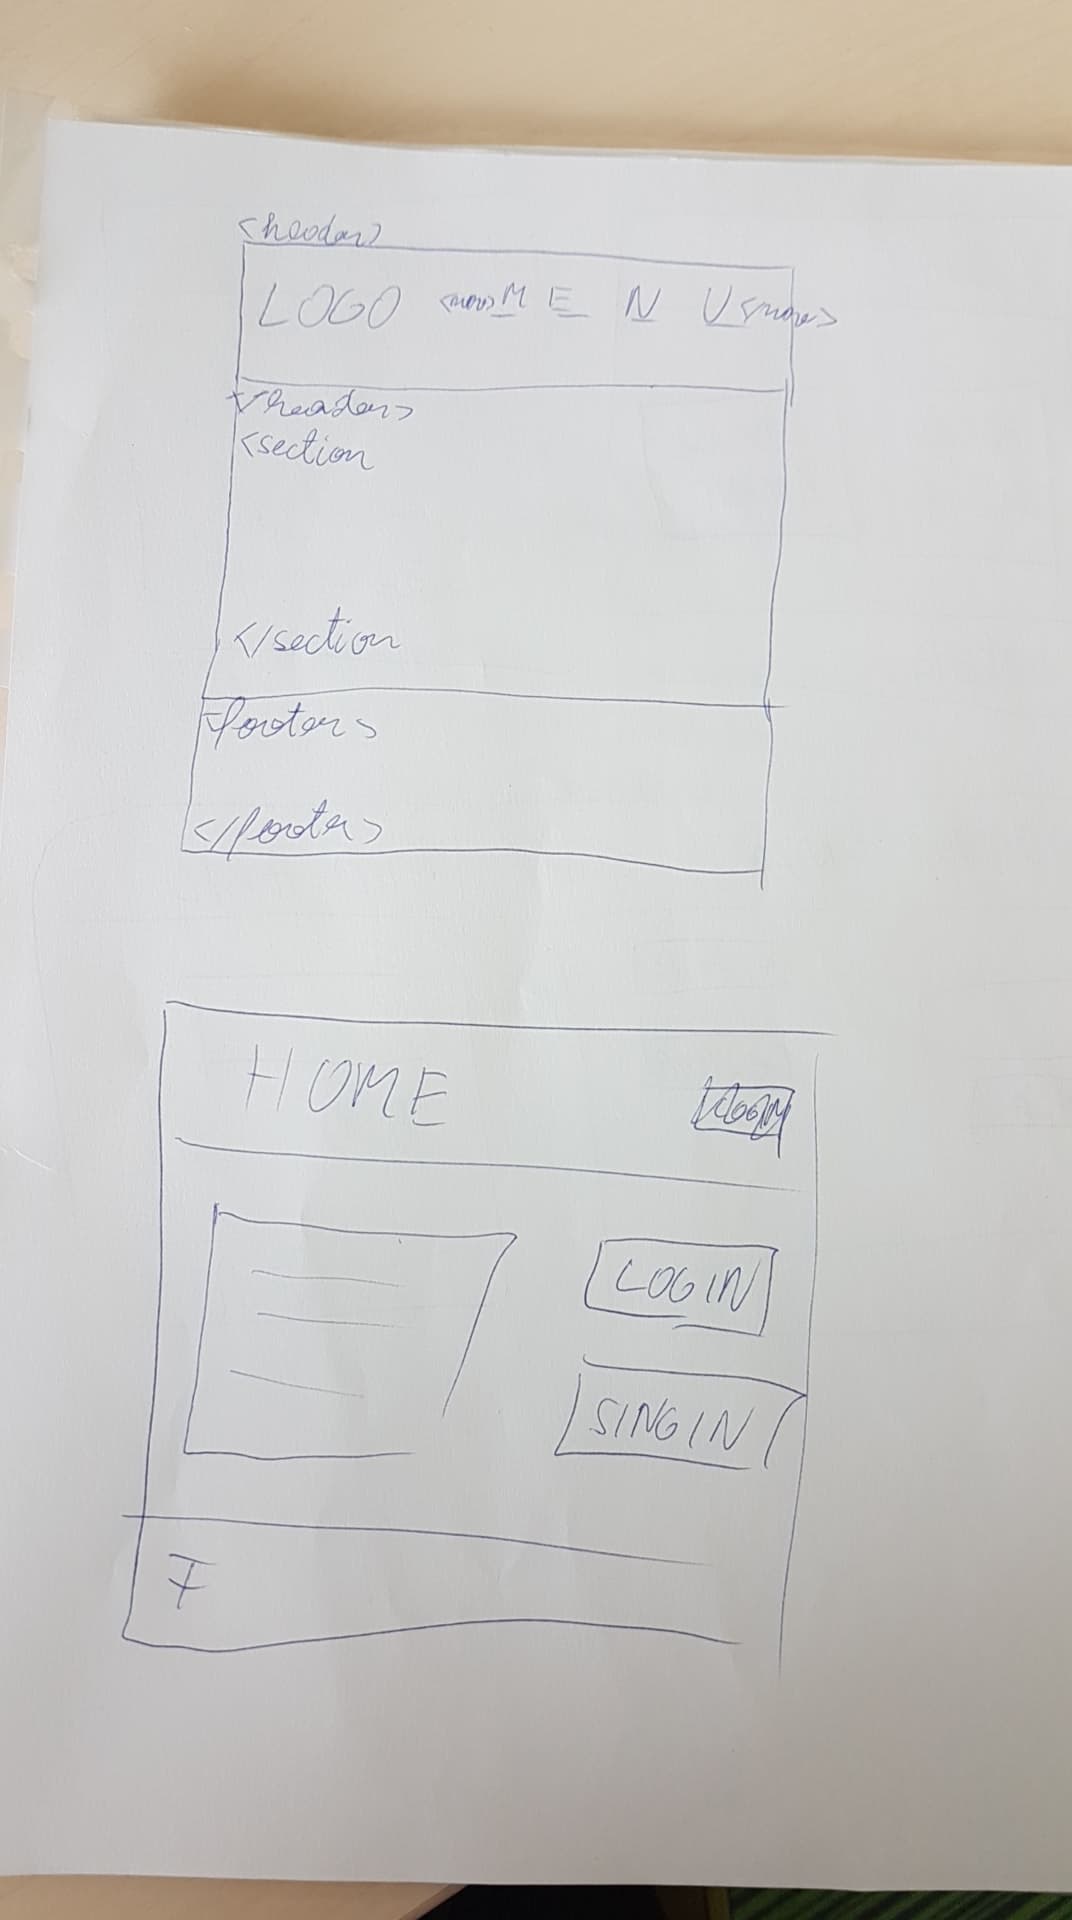 <header>
LOGO <nav> M E N U <nav>
</header>
<section
</section
<footer>
</footer>
HOME
LOGIN
SINGIN
F